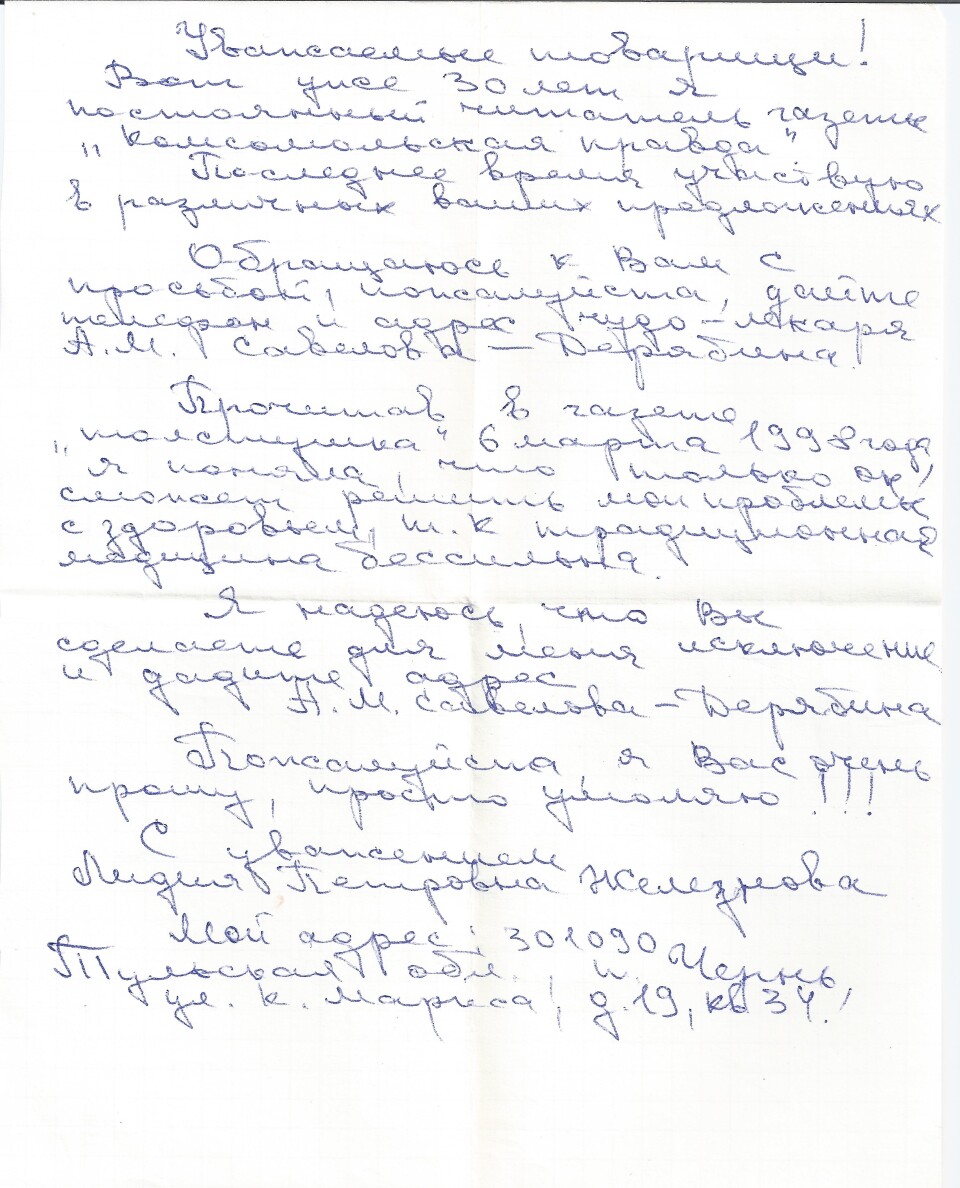 Уважаемые товарищи!
Вот уже 30 лет я
постоянный читатель газеты
„Комсомольская правда"
Последнее время участвую
в различных ваших предложениях
Обращаюсь к Вам с
просьбой, пожалуйста, дайте
телефон и адрес чудо-лекаря
А.М. Савелова-Дерябина.
Прочитав в газете
„толстушка" 6 марта 1998 года
я поняла, что только он
сможет решить мои проблемы
с здоровьем, т.к традиционная
медицина бессильна.
Я надеюсь, что Вы
сделаете для меня исключение
и дадите адрес
А.М. Савелова-Дерябина
Пожалуйста, я Вас очень
прошу, просто умоляю!!!
С уважением
Лидия Петровна Железнова
Мой адрес: 301090
Тульская обл., п. Чернь,
ул. К. Маркса, д.19, кв 34.